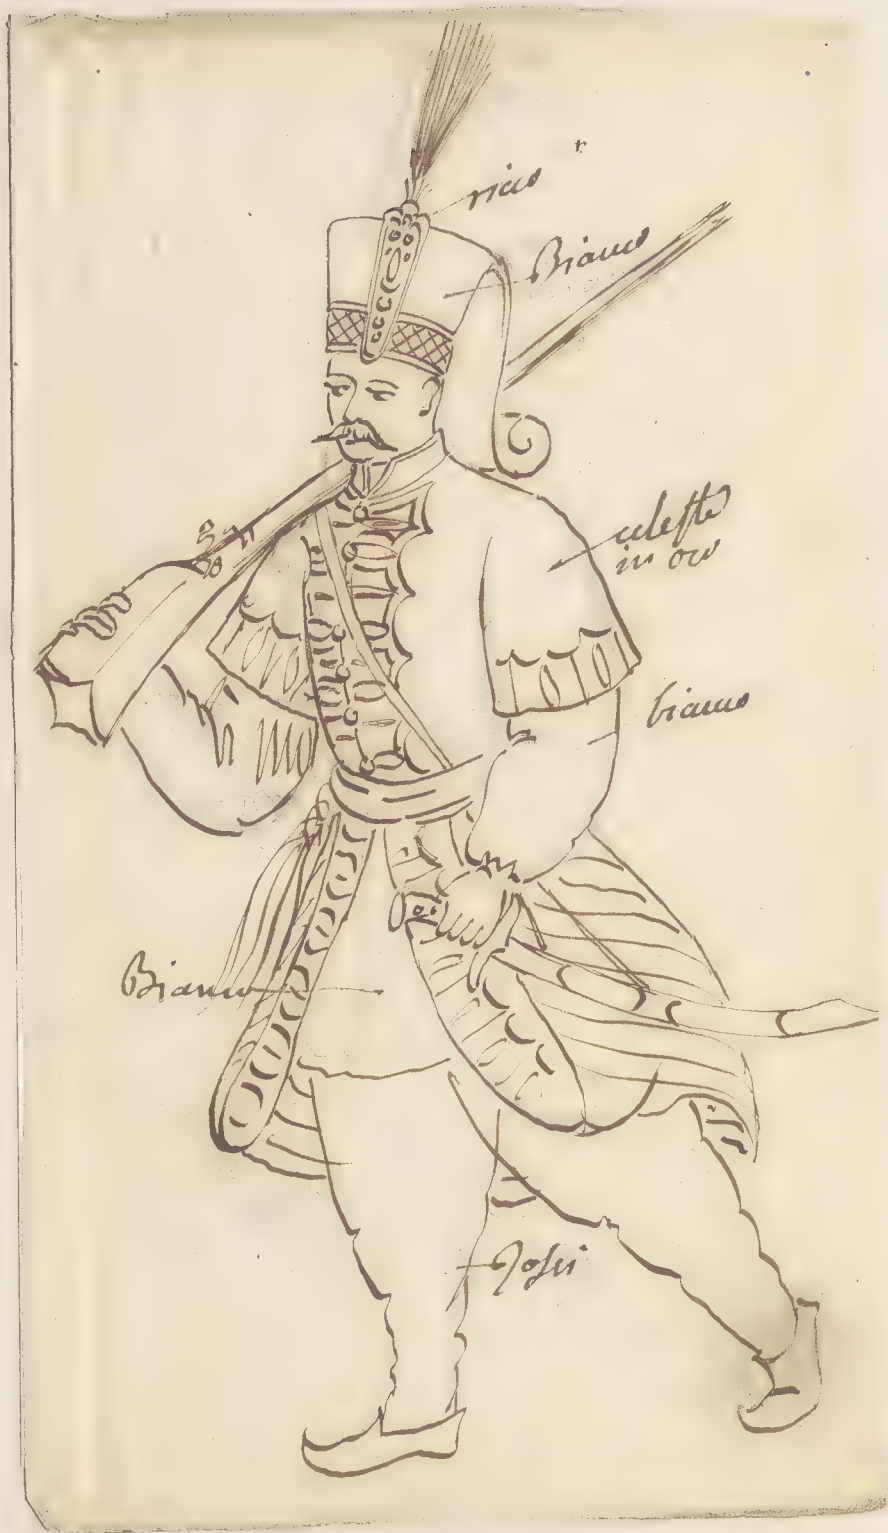 rico
Bianco
celeste
in oro
bianco
Bianco